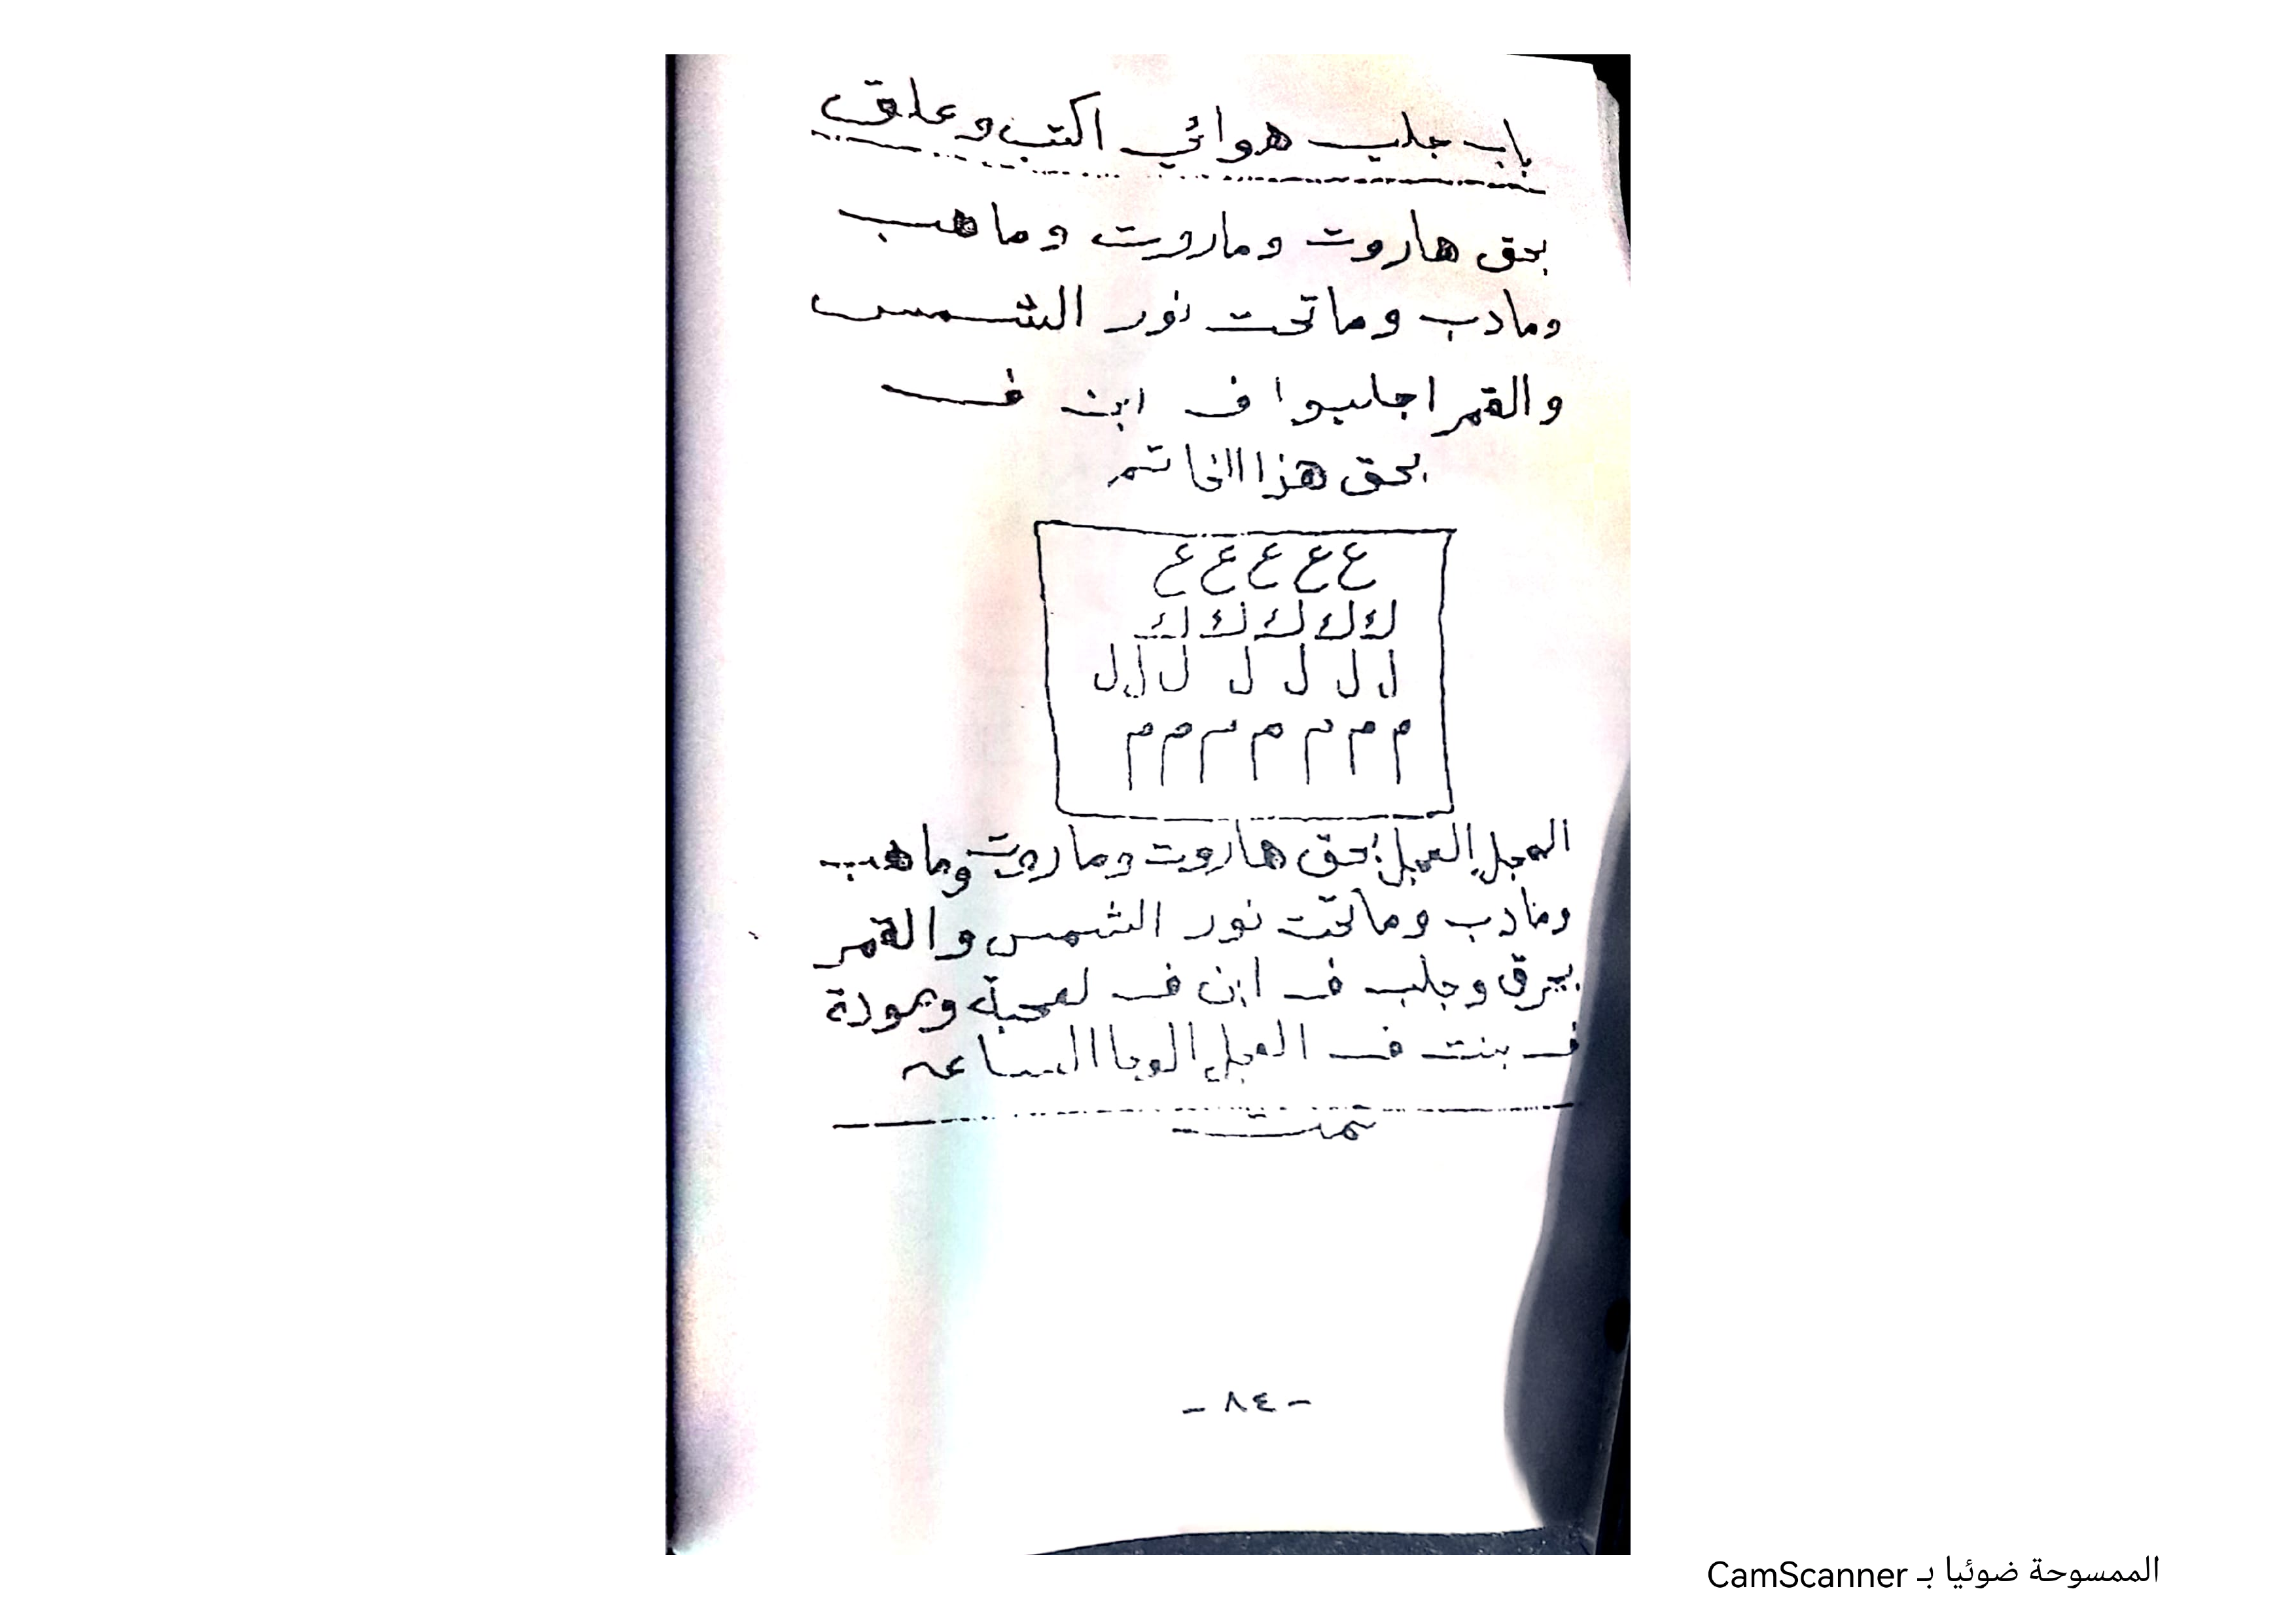 باب جلب هوائي اكتب وعلق
بحق هاروت وماروت وما هب
وما دب وما تحت نور الشمس
والقمر اجلبوا ف ابن ف
بحق هذا الخاتم
ع ع ع ع ع
ك ك ك ك ك
ل ل ل ل ل ل ل
م م م م م م م
العجل العجل بحق هاروت وماروت وما هب
وما دب وما تحت نور الشمس والقمر
وجلب ف ابن ف لمحبة ومودة
ف بنت ف العجل الوحا الساعه
تمت
- ٨٤ -
الممسوحة ضوئيا بـ CamScanner